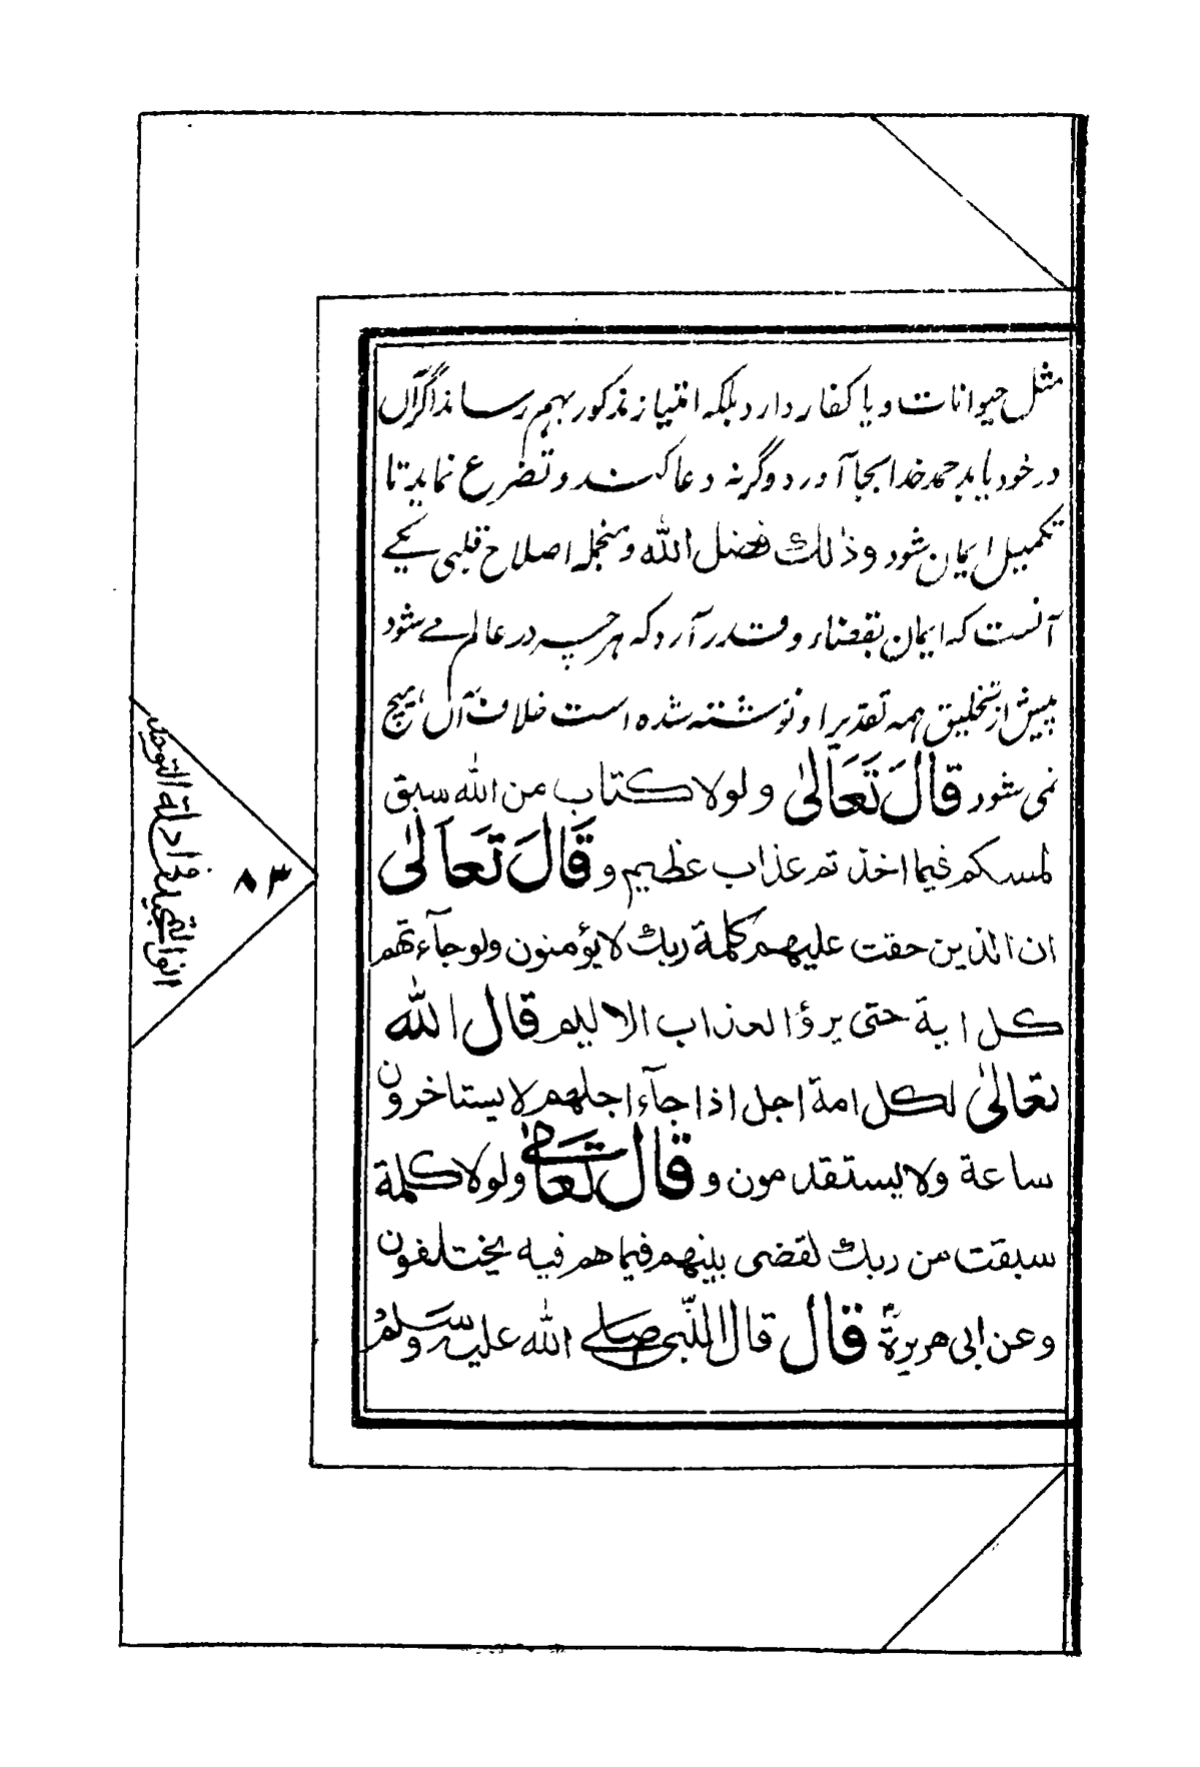 مثل حیوانات و یا کفار دارد بلکه امتیاز مذکور بهم رساند اگر آں
در خود یابد حمد خدا بجا آورد و گرنه دعا کند و تضرع نماید تا
تکمیل ایمان شود وذلك فضل الله و منجمله اصلاح قلبی یکے
آنست که ایمان بقضاء و قدر آرد که هرچه در عالم مے شود
پیش از تخلیق همه تقدیر او نوشته شده است خلاف آں هیچ
نمی شود قَالَ تَعَالىٰ ولولا كتاب من الله سبق
لمسكم فيما اخذتم عذاب عظيم و قَالَ تَعَالىٰ
ان الذين حقت عليهم كلمة ربك لا يؤمنون ولو جآءتهم
كل اية حتى يرؤا العذاب الاليم قال الله
تعالىٰ لكل امة اجل اذا جآء اجلهم لا يستاخرون
ساعة ولا يستقدمون و قال تعالى ولولا كلمة
سبقت من ربك لقضى بينهم فيما هم فيه يختلفون
وعن ابى هريرة قال قال النّبى صلى الله عليه وسلم
انوار التمجيد فى ادلة التوحيد
٨٣